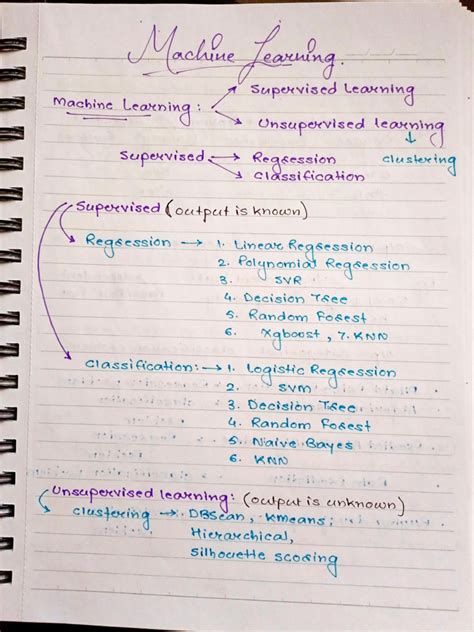 Machine Learning.
Supervised Learning
Machine Learning:
Unsupervised learning
Supervised → Regression
clustering
→ classification
Supervised (output is known)
Regression → 1. Linear Regression
2. Polynomial Regression
3. SVR
4. Decision Tree
5. Random Forest
6. Xgboost, 7. KNN
classification: → 1. Logistic Regression
2. SVM
3. Decision Tree
4. Random Forest
5. Naive Bayes
6. KNN
Unsupervised learning: (output is unknown)
clustering → DBScan, KMeans,
Hierarchical,
silhouette scoring